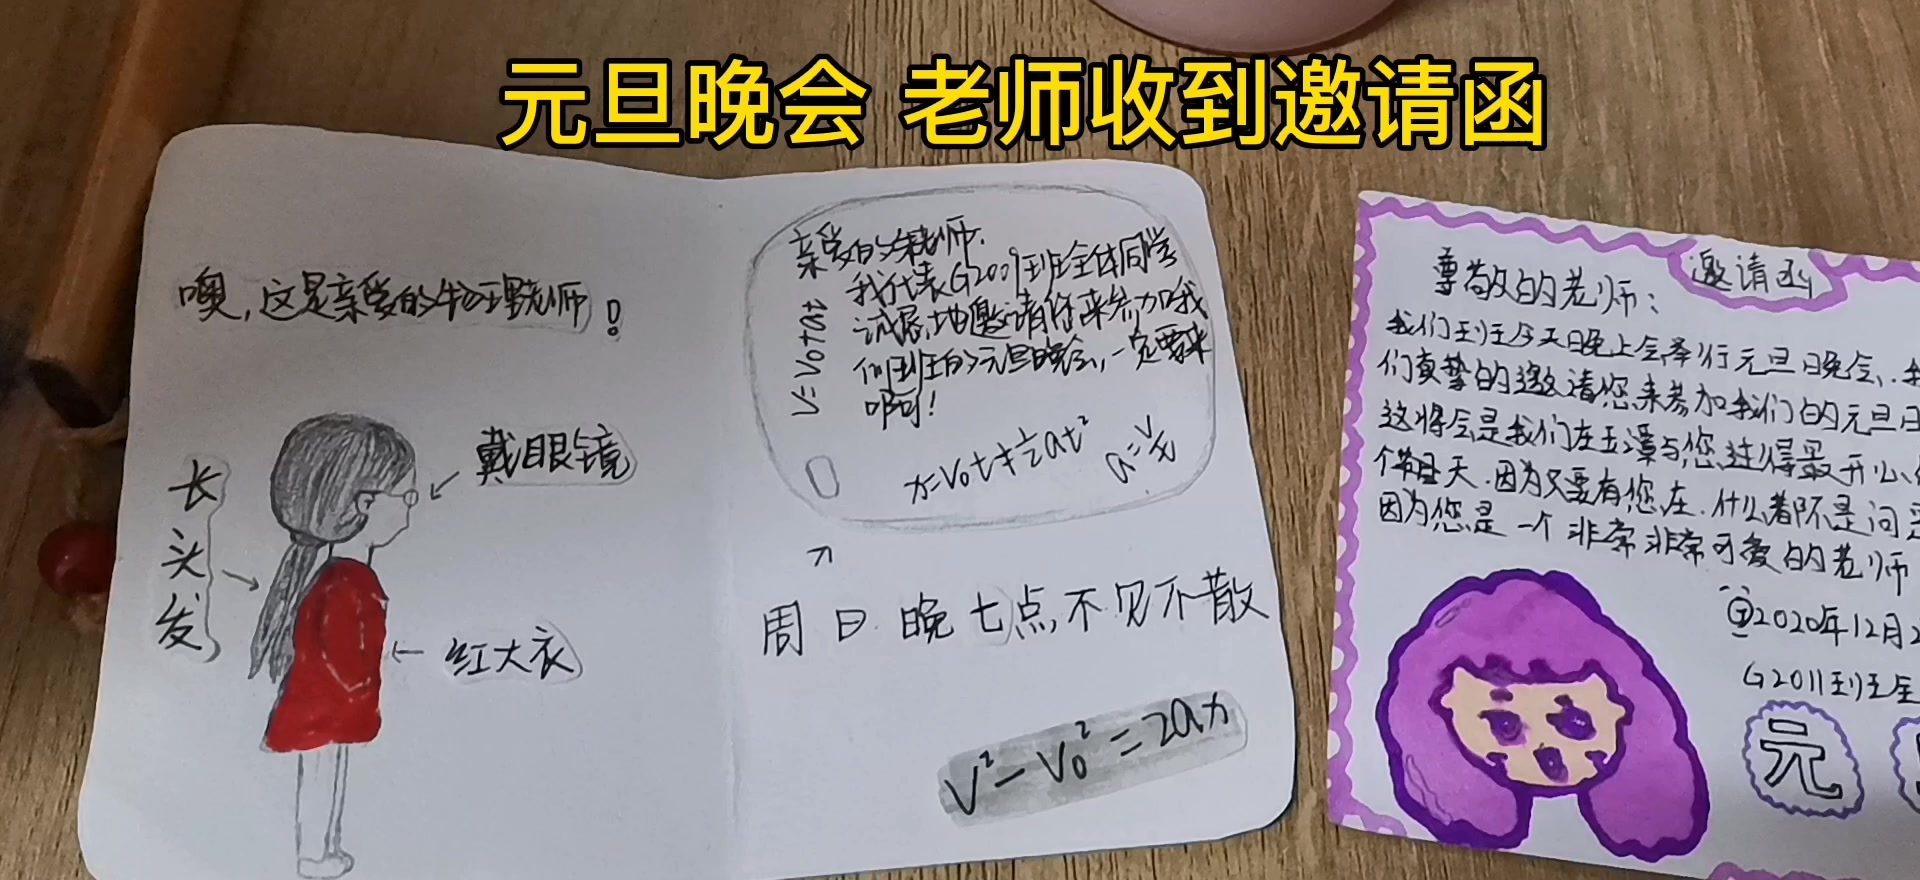 元旦晚会 老师收到邀请函
噢,这是亲爱的物理老师!
戴眼镜
长头发
红大衣
亲爱的老师.
我代表G2009班全体同学
诚恳地邀请你来参加我
们班的元旦晚会,一定要来
啊!
V=V₀+at
x=V₀t+½at²
a=v/t
周日晚七点,不见不散
V²-V₀²=2ax
邀请函
尊敬的老师:
我们班今天晚上会举行元旦晚会,.我
们真挚的邀请您来参加我们的元旦
这将会是我们在玉潭与您过得最开心
个节日天.因为只要有您在.什么都不是问
因为您是一个非常非常可爱的老师
2020年12月2
G2011班全
元